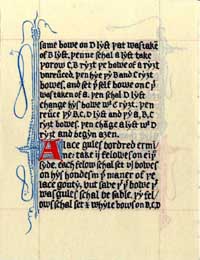 same bowe on D lyft þat was take
of D lyft, þenne schal A lyft take
þorow C, B ryȝt þe bowe of A ryȝt
yn B C ryȝt
bowes, and set yͤ self bowe on C yͭ
was taken of A. þen schal D lyft
change his bowe wͭ C ryȝt. þen
reuce yͤ B, C, D lyft and yͤ A, B, C
ryȝt bowes. þen change A lyft wͭ D
ryȝt and begyn aȝen.
A lace gules bordred ermi/
ne: take ij felowes on eiþer
syde, eche felow schal set v bowes
on his hondes in yͤ maner of yͤ
lace gouty, but save yͭ yͤ bowe yͭ
was gules schal be sable. yͤ fel,
ows schal set whyte bows on B, C, D